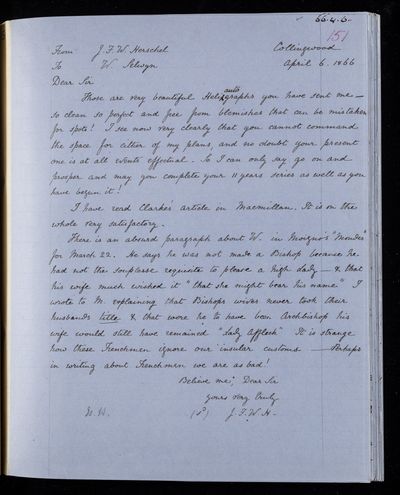 66.4.6.
151
From J. F. W. Herschel Collingwood
To W. Selwyn April 6. 1866
Dear Sir
Those are very beautiful Heliautographs you have sent me —
so clean so perfect and free from blemishes that can be mistaken
for spots! I see now very clearly that you cannot command
the space for either of my plans, and no doubt your present
one is at all events effectual. So I can only say go on and
prosper and may you complete your 11 years series as well as you
have begun it!
I have read Clarke's article in Macmillan. It is on the
whole very satisfactory.
There is an absurd paragraph about W. in Moigno's "Mondes"
for March 22. He says he was not made a Bishop because he
had not the souplesse requisite to please a high Lady — & that
his wife much wished it "that she might bear his name" I
wrote to M. explaining that Bishops wives never took their
husbands title & that were he to have been Archbishop his
wife would still have remained "Lady Affleck" It is strange
how these Frenchmen ignore our insular customs — Perhaps
in writing about Frenchmen we are as bad!
Believe me; Dear Sir
yours very truly
(S) J. F. W. H.